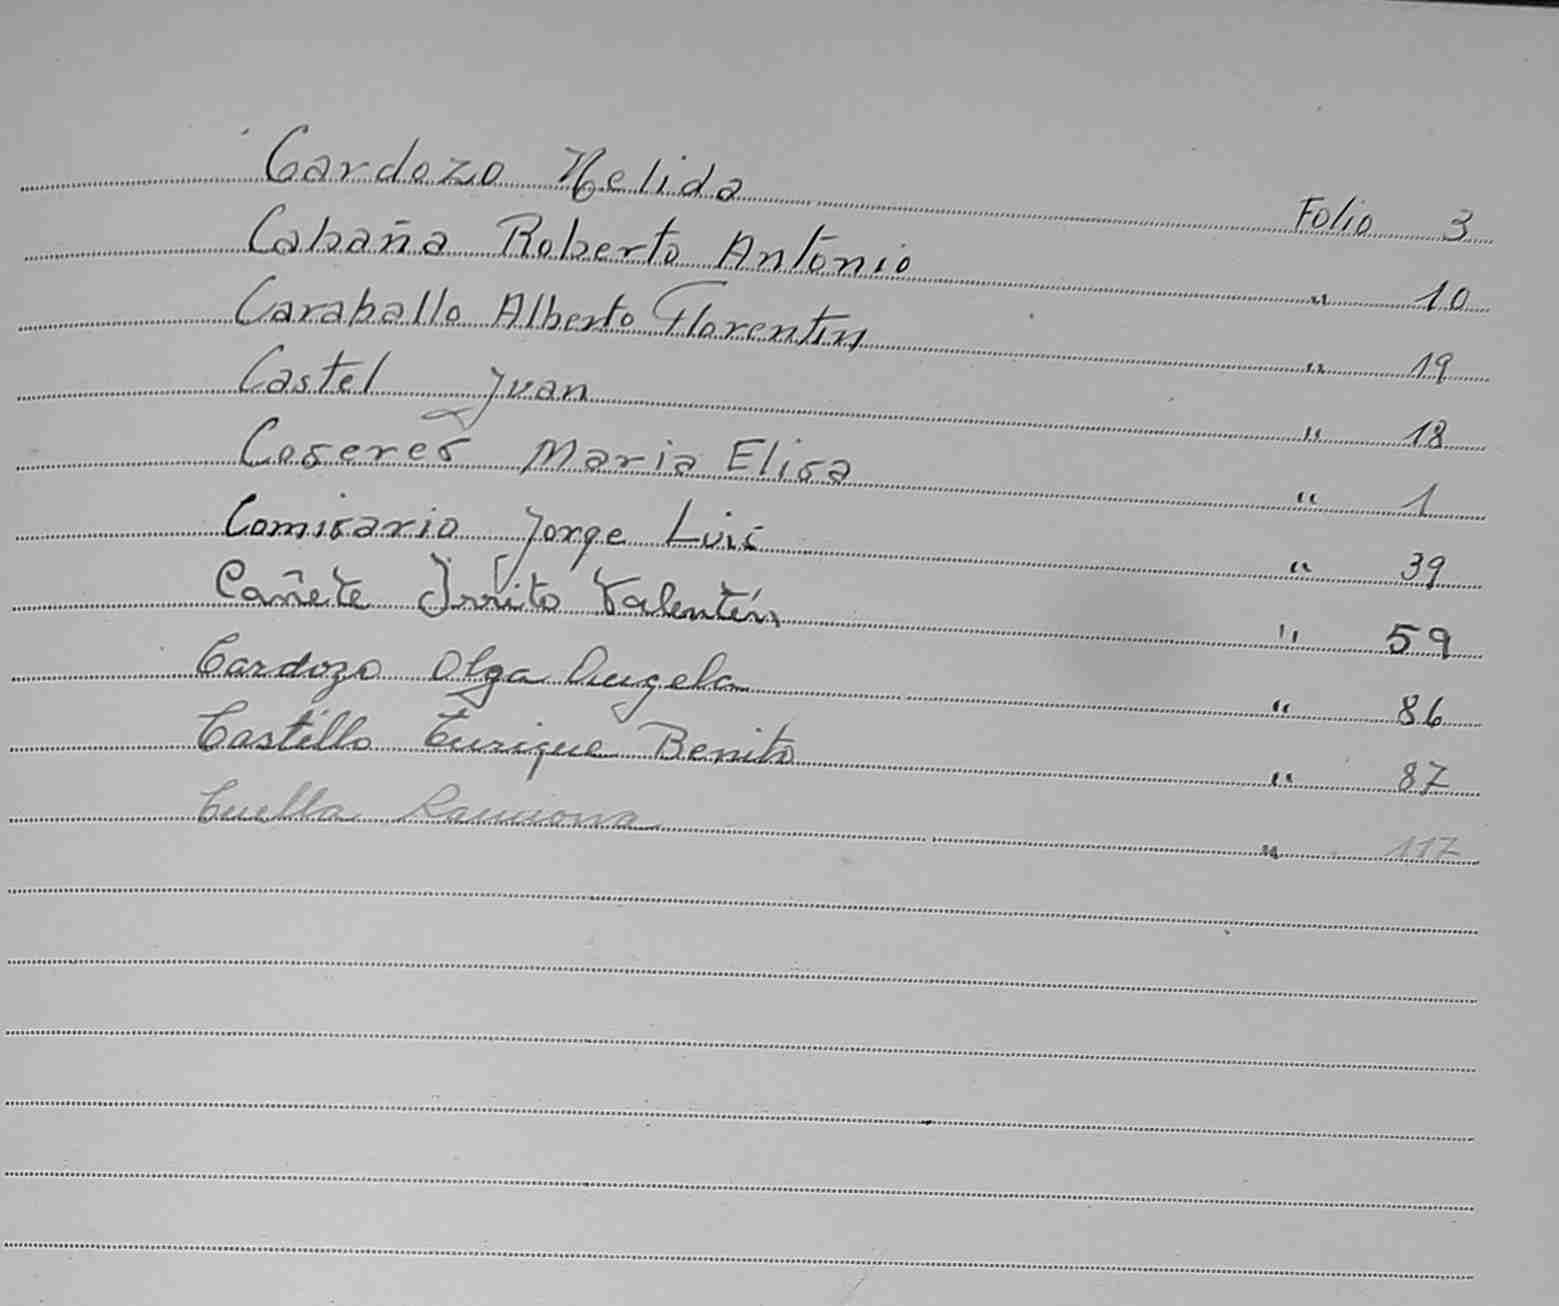 Cardozo Nelida Folio 3
Cabaña Roberto Antonio " 10
Caraballo Alberto Florentin " 19
Castel Juan " 18
Coseres Maria Elisa " 1
Comisario Jorge Luis " 39
Cañete Valentín " 59
Cardozo Olga Angela " 86
Castillo Enrique Benito " 87
Cuella Ramona " 117